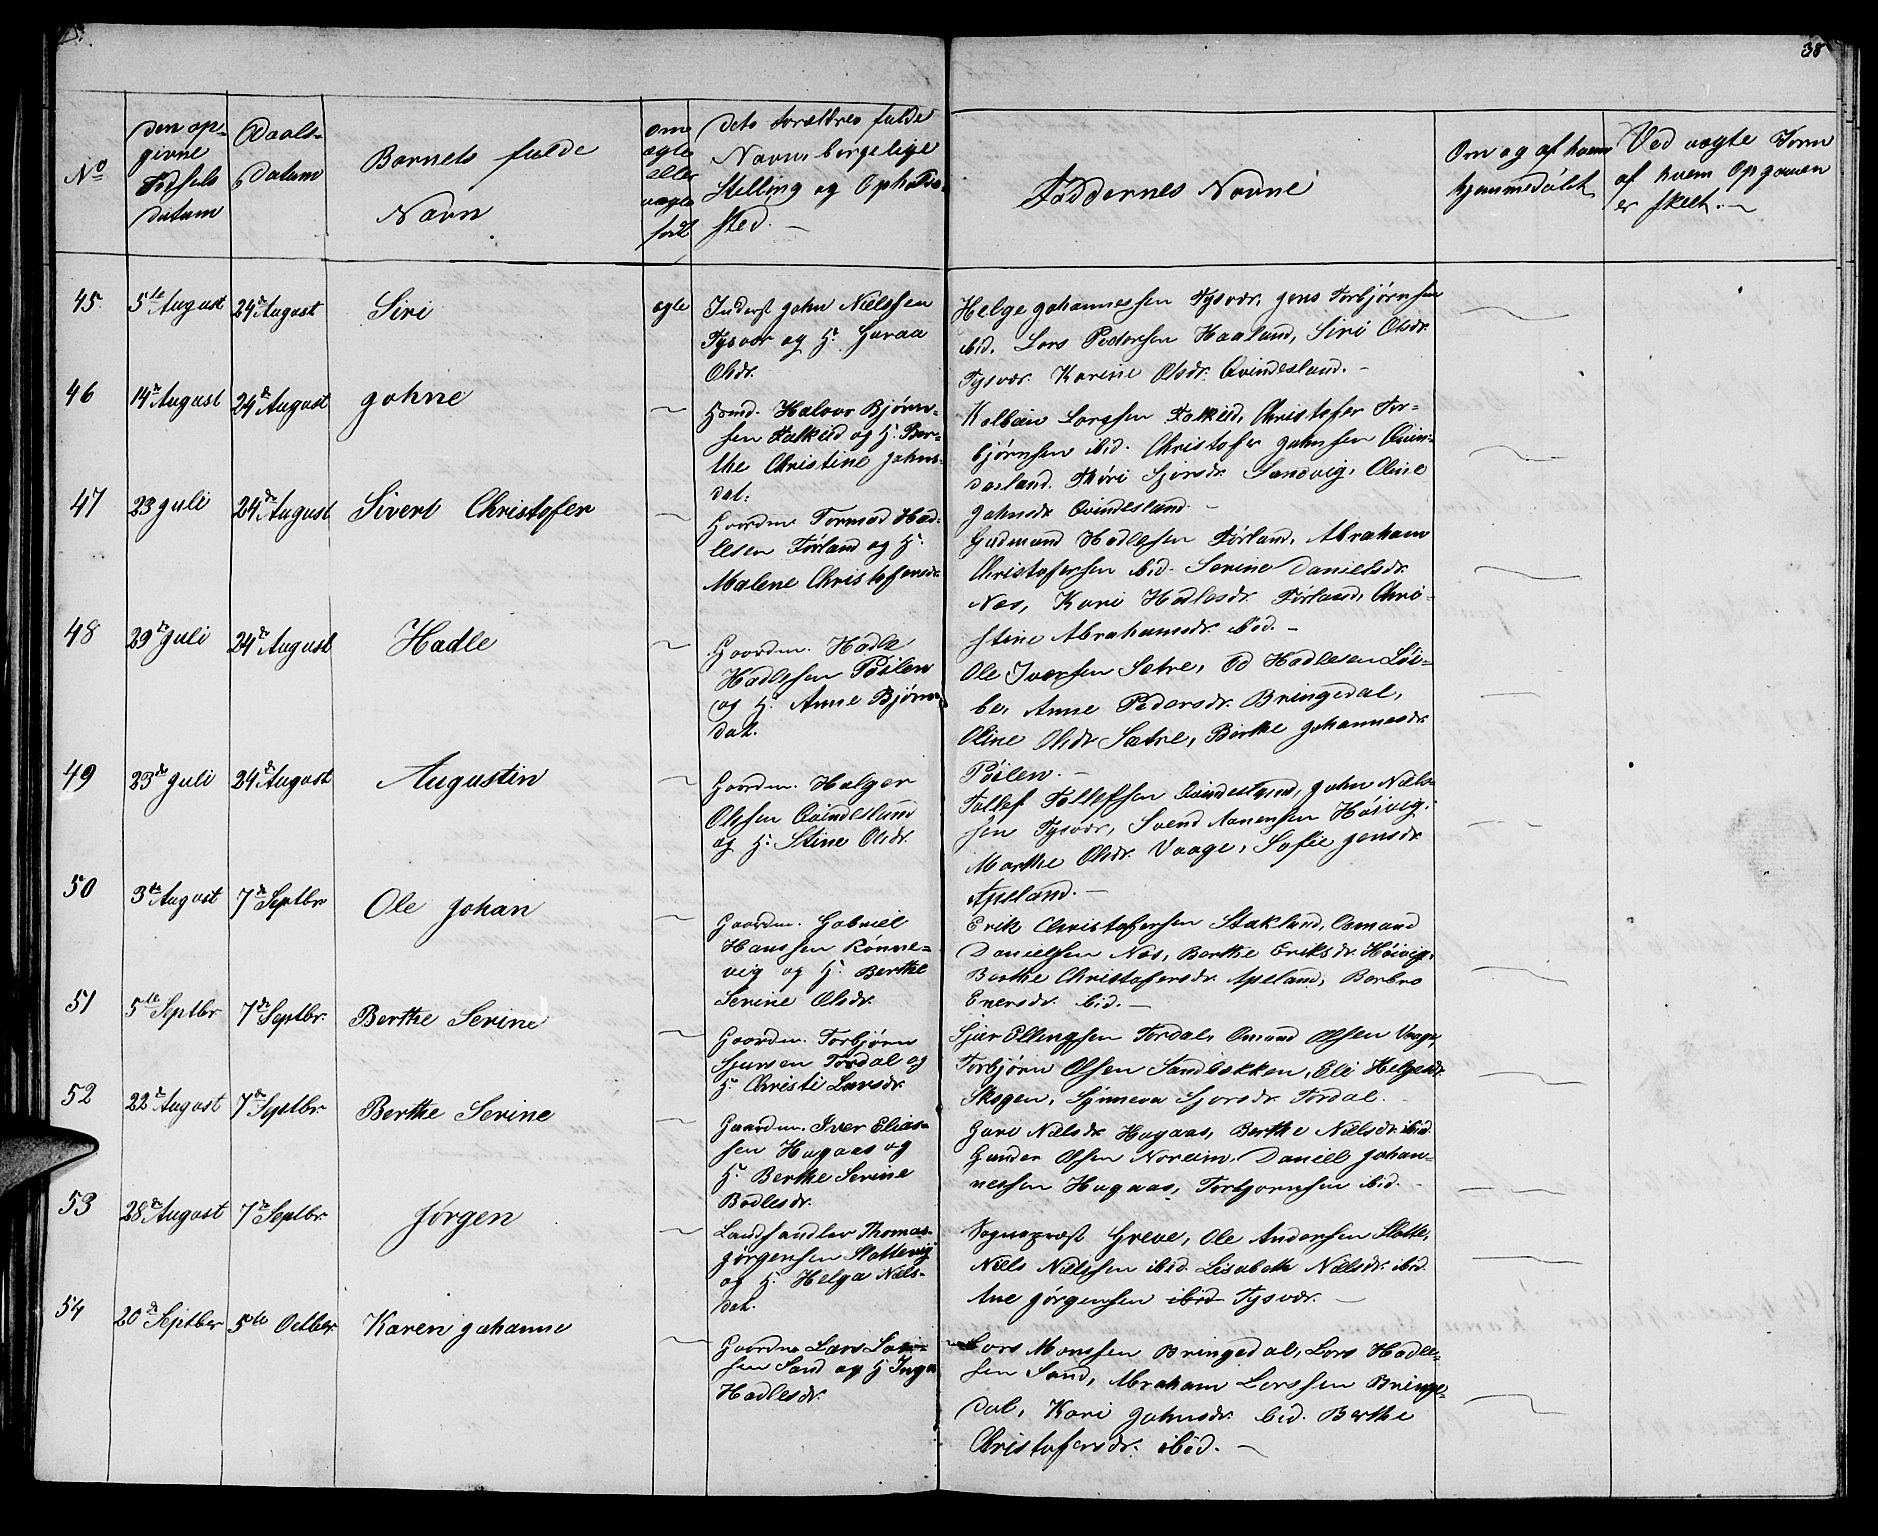 38
No
Den op-
givne
Fødsels
datum
Daabs-
Datum
Barnets fulde
Navn
Om
ægte
eller
uægte
født
Dets Forældres fulde
Navn, borgelige
Stilling og Opholds-
sted. —
Faddernes Navne
Om og af hvem
hjemmedøbt
Ved uægte Børn
af hvem Opgaven
er skeet. —
45. 5te August 24de August Siri ægte
Inderst John Nielssen
Tysvær og H. Guroa
Olsdr.
Helge Johannessen Tysvær, Jens Torbjørnsen
ibid. Lars Pedersen Haaland, Siri Olsdr.
Tysvær. Karine Olsdr. Qvindesland. —
46 14de August 24de August Johne —
Hmd. Halvor Bjørn-
sen Falkeid og H. Ber-
the Christine Johns-
dat.
Kolbein Larssen Falkeid, Christofer Tor-
bjørnsen ibid. Christofer Johnsen Qvin-
desland. Thøri Sjursdr. Sandvig, Oline
Johnsdr. Qvindesland. —
47 23 Juli 24de August Sivert Christofer —
Gaardm. Tormod Had-
lesen Førland og H.
Malene Christofersdr.
Gudmund Hadlesen Førland, Abraham
Christofersen ibid. Serine Danielsdr.
Nes, Kari Hadlesdr. Førland, Chri-
stine Abrahamsdr. ibid. —
48 29de Juli 24de August Hadle —
Gaardm. Hadle
Hadlessen Pøilen
og H. Anne Bjørns-
dat.
Ole Iversen Sætre, Ed Hadlesen Lii-
be, Anne Pedersdr. Bringedal,
Oline Olsdr. Sætre, Berthe Johannesdr.
Pøilen. —
49 23de Juli 24de August Augustin —
Gaardm. Holger
Olssen Qvindesland
og H. Stine Olsdr.
Tollef Tollefsen Qvindesland, John Niels-
sen Tysvær, Svend Aanensen Høivig,
Marthe Olsdr. Vaage, Sofie Jensdr.
Apeland. —
50 3de August 7de Septbr Ole Johan —
Gaardm. Gabriel
Hanssen Rønne-
vig og H. Berthe
Serine Olsdr.
Erik Christofersen Stakland, Osmund
Danielsen Nes, Berthe Eriksdr. Høivig,
Berthe Christofersdr. Apeland, Barbro
Enersdr. ibid. —
51 5te Septbr 7de Septbr. Berthe Serine —
Gaardm. Torbjørn
Sjursen Tordal og
H. Christi Larsdr.
Sjur Ellingsen Tordal, Omund Olsen Vaage,
Torbjørn Olsen Sandbekken, Eli Helgesdr.
Skogen, Synneva Sjursdr. Tordal. —
52 22de August 7de Septbr. Berthe Serine —
Gaardm. Iver Elias-
sen Hagaas og
H. Berthe Serine
Bodlesdr.
Guri Nielsdr. Hagaas, Berthe Nielsdr. ibid.
Gunder Olsen Noreim, Daniel Johan-
nessen Hagaas, Torbjørnsen ibid. —
53 28de August 7de Septbr. Jørgen —
Landhandler Thomas
Jørgensen Slottevig
og H. Helga Niels-
dat.
Sognepræst Greve, Ole Andersen Slotte,
Niels Nielssen ibid. Lisabeth Nielsdr. ibid.
Ane Jørgensen ibid Tysvær. —
54 20de Septber 5te Octber Karen Johanne —
Gaardm. Lars Lar-
sen Sand og H. Inga
Hadlesdr.
Lars Monssen Bringedal, Lars Hadle-
sen Sand, Abraham Larssen Bringe-
dal, Kari Johnsdr. ibid. Berthe
Christofersdr. ibid. —